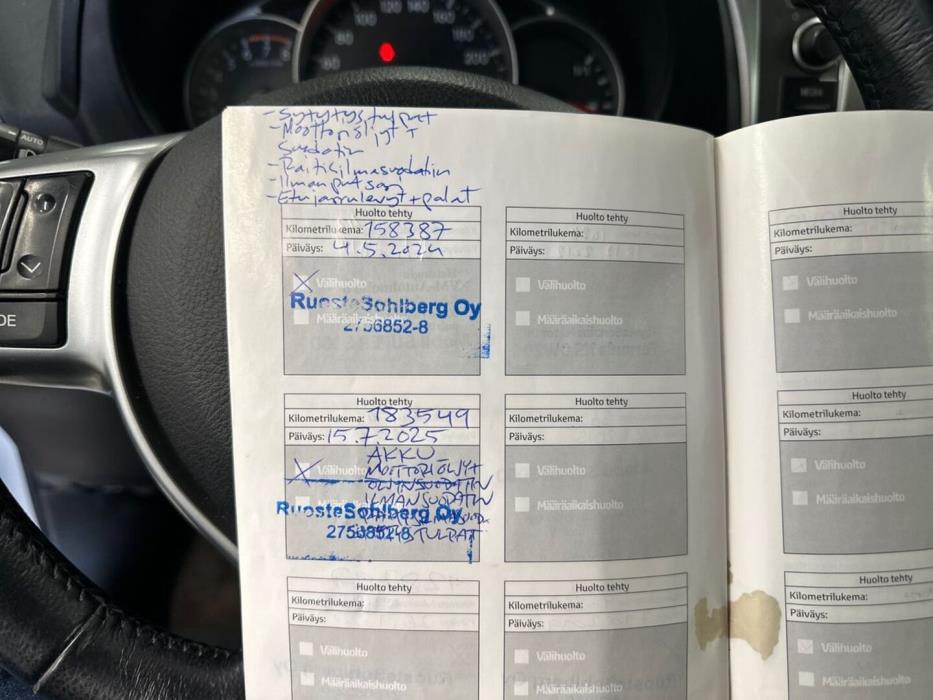 100 120 140 160
80 180
60 200
AUTO
DE
- Sytytystulpat
- Moottoriöljyt +
Suodatin
- Raitisilmasuodatin
- Ilman
- Etujarrulevyt + palat
Huolto tehty
Kilometrilukema: 158387
Päiväys: 4.5.2024
Välihuolto
RuosteSohlberg Oy
Määräaikaishuolto
2756852-8
Huolto tehty
Kilometrilukema: 183549
Päiväys: 15.7.2025
AKKU
Välihuolto MOOTTORIÖLJYT
ÖLJYNSUODATIN
ILMANSUODATIN
RuosteSohlberg Oy
2756852-8 TULPAT
Huolto tehty
Kilometrilukema:
Päiväys:
Välihuolto
Määräaikaishuolto
Huolto tehty
Kilometrilukema:
Päiväys:
Välihuolto
Määräaikaishuolto
Huolto tehty
Kilometrilukema:
Päiväys:
Välihuolto
Määräaikaishuolto
Huolto tehty
Kilometrilukema:
Päiväys:
Välihuolto
Määräaikaishuolto
Huolto tehty
Kilometrilukema:
Päiväys:
Välihuolto
Määräaikaishuolto
Huolto tehty
Kilometrilukema:
Päiväys:
Välihuolto
Määräaikaishuolto
Huolto tehty
Kilometrilukema:
Päiväys:
Välihuolto
Määräaikaishuolto